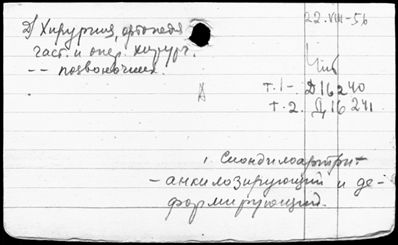 22.VIII-56
2) Хирургия, ортопедя
част. и опер. хирург.
-- позвоночник.
т.1-. Д16240
т.2. Д16241
1. Спондилоартрит
- анкилозирующий и де-
формирующий.